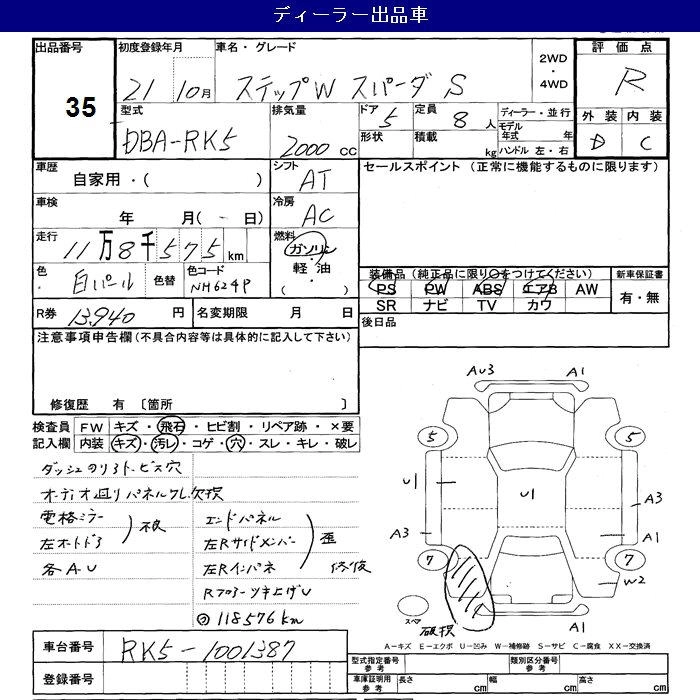 ディーラー出品車
出品番号 35
初度登録年月 21 10月
車名・グレード ステップW スパーダ S
2WD ・ 4WD
評価点 R
外装 D 内装 C
型式 DBA-RK5
排気量 2000 cc
ドア 5
形状
定員 8 人
積載 kg
ディーラー・並行
モデル年式 年
ハンドル 左・右
車歴 自家用・( )
シフト AT
セールスポイント (正常に機能するものに限ります)
車検 年 月(-日)
冷房 AC
走行 11万8千575km
燃料 ガソリン・軽油・( )
色 白パール 色替
色コード NH624P
装備品(純正品に限り○をつけてください)
PS PW ABS エアB AW
SR ナビ TV カワ
新車保証書 有・無
R券 13,940 円
名変期限 月 日
後日品
注意事項申告欄(不具合内容等は具体的に記入して下さい)
修復歴 有 〔箇所 〕
検査員記入欄
FW キズ・飛石・ヒビ割・リペア跡・×要
内装 キズ・汚レ・コゲ・穴・スレ・キレ・破レ
ダッシュのり3ト、ビス穴
オーディオ廻りパネルワレ欠損
電格ミラー
左オートドア
不良
各A・U
エンドパネル
左Rサイドメンバー
左Rインパネ
歪 修復
Rフロアーツキ上げU
◎118576km
AU3 A1
5 5
U1 U1 A3
A3 A1
7 7
W2
スペア 破損 A1
A-キズ E-エクボ U-凹み W-補修跡 S-サビ C-腐食 XX-交換済
車台番号 RK5-1001387
登録番号
型式指定番号 参考 類別区分番号 参考
車庫証明用 参考 長さ cm 幅 cm 高さ cm